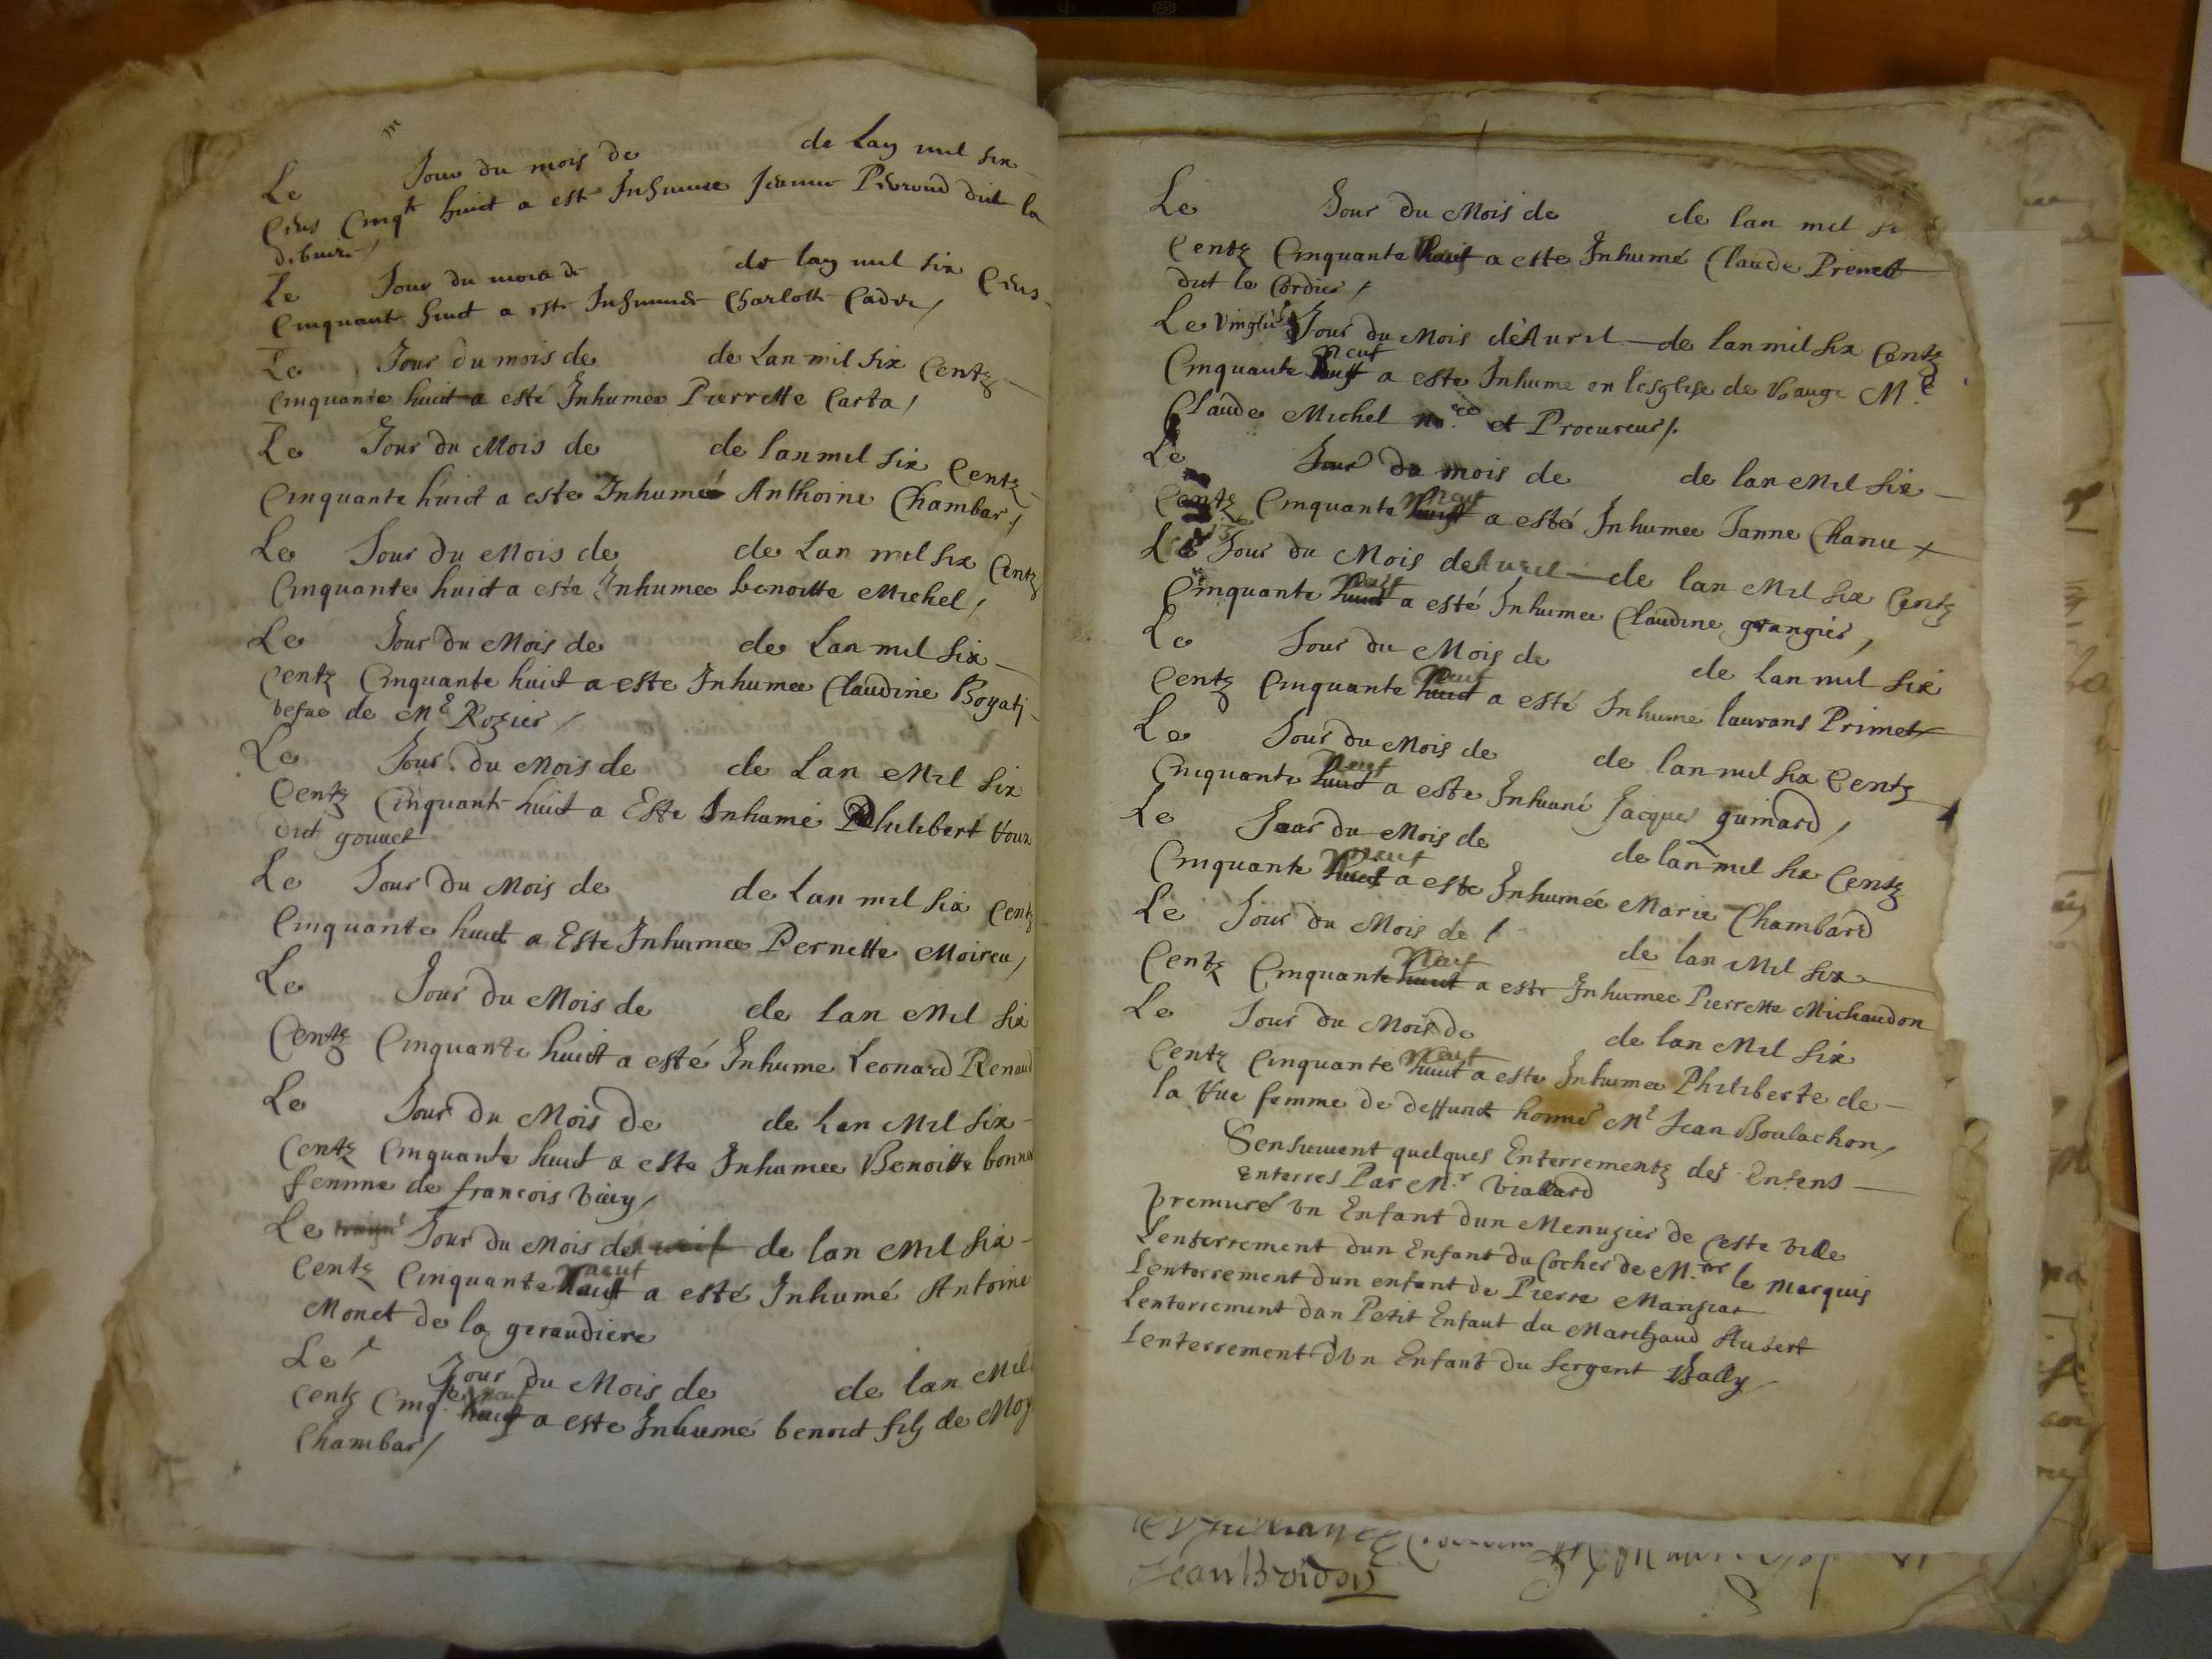 Le Jour du mois de de Lan mil six
Cens Cinqte huict a este Inhumee Jeanne dit la
Le Jour du mois de de lan mil six Cens
Cinquante huict a este Inhumee Charlotte
Le Jour du mois de de Lan mil six Centz
Cinquante huict a esté Inhumee Pierrette Carta /
Le Jour du Mois de de lan mil six Centz
Cinquante huict a este Inhumé Anthoine Chambar /
Le Jour du Mois de de Lan mil six Centz
Cinquante huict a este Inhumee benoitte Michel /
Le Jour du Mois de de Lan mil six
Centz Cinquante huict a este Inhumee Claudine Boyatj
vefue de Me Rozier /
Le Jour du Mois de de Lan Mil six
Centz Cinquante huict a Este Inhumé Philibert
dict gouuet
Le Jour du Mois de de Lan mil six Centz
Cinquante huict a Este Inhumee Pernette Moireu /
Le Jour du Mois de de Lan Mil six
Centz Cinquante huict a esté Inhume Leonard Renaud
Le Jour du Mois de de Lan Mil six
Centz Cinquante huict a este Inhumee Benoitte bonne
femme de francois /
Le Jour du Mois de de lan Mil six
Centz Cinquante neuf a esté Inhumé Antoine
Monet de la geraudiere
Le Jour du Mois de de lan Mil
Centz Cinqte neuf a este Inhumé benoict filz de
Chambar /
Le Jour du Mois de de lan mil
Centz Cinquante huict a este Inhumé Claude
dit le Cordier /
Le Vingtie Jour du Mois dèAuril de lan mil six Centz
Cinquante neuf a este Inhume en lesglise de Vauge Me
Claude Michel nore et Procureur /.
Le Jour du mois de de lan Mil six
Centz Cinquante neuf a esté Inhumee Janne Chanu
Le Jour du Mois deAuril de lan Mil six Centz
Cinquante neuf a esté Inhumee Claudine grangier /
Le Jour du Mois de de lan mil six
Centz Cinquante neuf a esté Inhumé laurans Primet
Le Jour du Mois de de lan mil six Centz
Cinquante neuf a este Inhumé Jacques guinard /
Le Jour du Mois de de lan mil six Centz
Cinquante neuf a este Inhumée Marie Chambard
Le Jour du Mois de de lan Mil six
Centz Cinquante neuf a este Inhumee Pierrette Michaudon
Le Jour du Mois de de lan Mil six
Centz Cinquante neuf a este Inhumee Philiberte de
la Vue femme de deffunct honne Me Jean Boulachon /
Sensuiuent quelques Enterrementz des Enfens
Enterres Par Mr Vialard
premure vn Enfant dun Menuzier de Ceste Ville
Lenterrement dun Enfant du Cocher de Mor le Marquis
Lenterrement dun enfant de Pierre
Lenterrement dun Petit Enfant du Marchand Aubert
Lenterrement dVn Enfant du Sergent Bally /
Jean Bridon